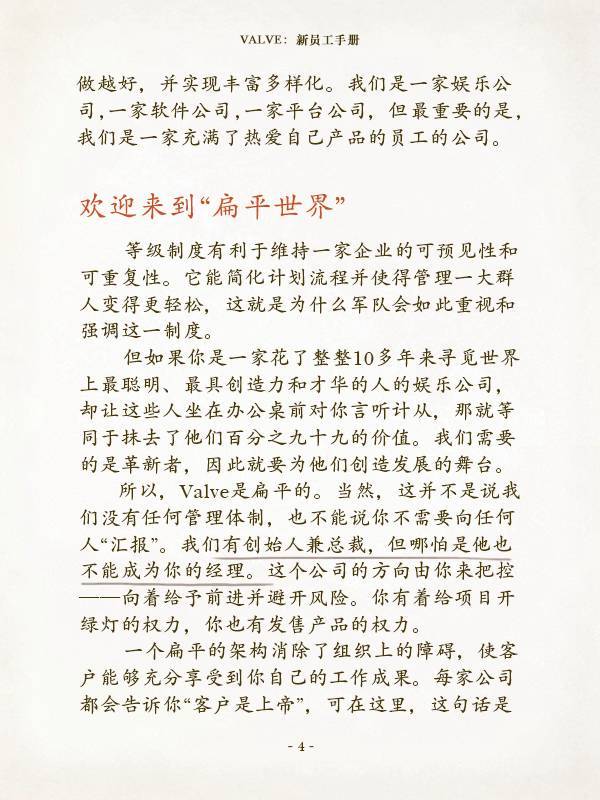 VALVE：新员工手册
做越好，并实现丰富多样化。我们是一家娱乐公
司,一家软件公司,一家平台公司，但最重要的是，
我们是一家充满了热爱自己产品的员工的公司。
欢迎来到“扁平世界”
等级制度有利于维持一家企业的可预见性和
可重复性。它能简化计划流程并使得管理一大群
人变得更轻松，这就是为什么军队会如此重视和
强调这一制度。
但如果你是一家花了整整10多年来寻觅世界
上最聪明、最具创造力和才华的人的娱乐公司，
却让这些人坐在办公桌前对你言听计从，那就等
同于抹去了他们百分之九十九的价值。我们需要
的是革新者，因此就要为他们创造发展的舞台。
所以，Valve是扁平的。当然，这并不是说我
们没有任何管理体制，也不能说你不需要向任何
人“汇报”。我们有创始人兼总裁，但哪怕是他也
不能成为你的经理。这个公司的方向由你来把控
——向着给予前进并避开风险。你有着给项目开
绿灯的权力，你也有发售产品的权力。
一个扁平的架构消除了组织上的障碍，使客
户能够充分享受到你自己的工作成果。每家公司
都会告诉你“客户是上帝”，可在这里，这句话是
- 4 -